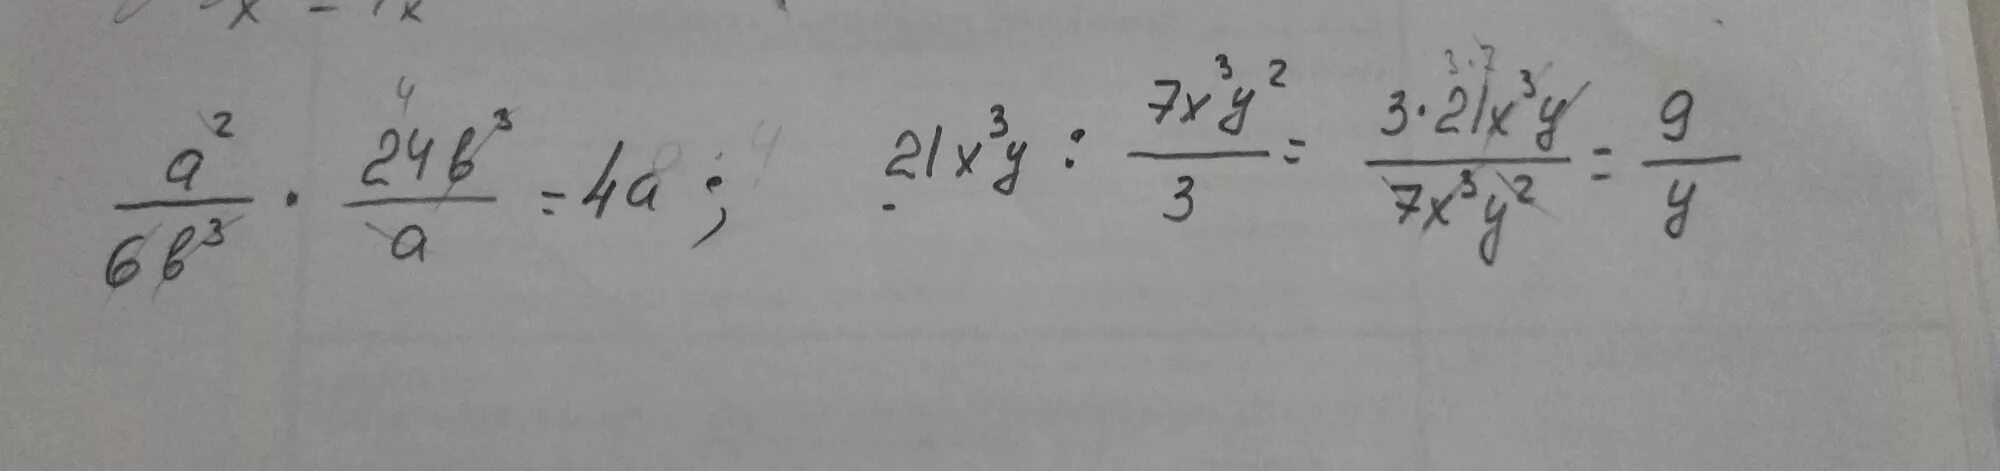 x - 4x
a²/6b³ · 24b³/a = 4a ; 21x³y : 7x³y²/3 = 3·21x³y/7x³y² = 9/y